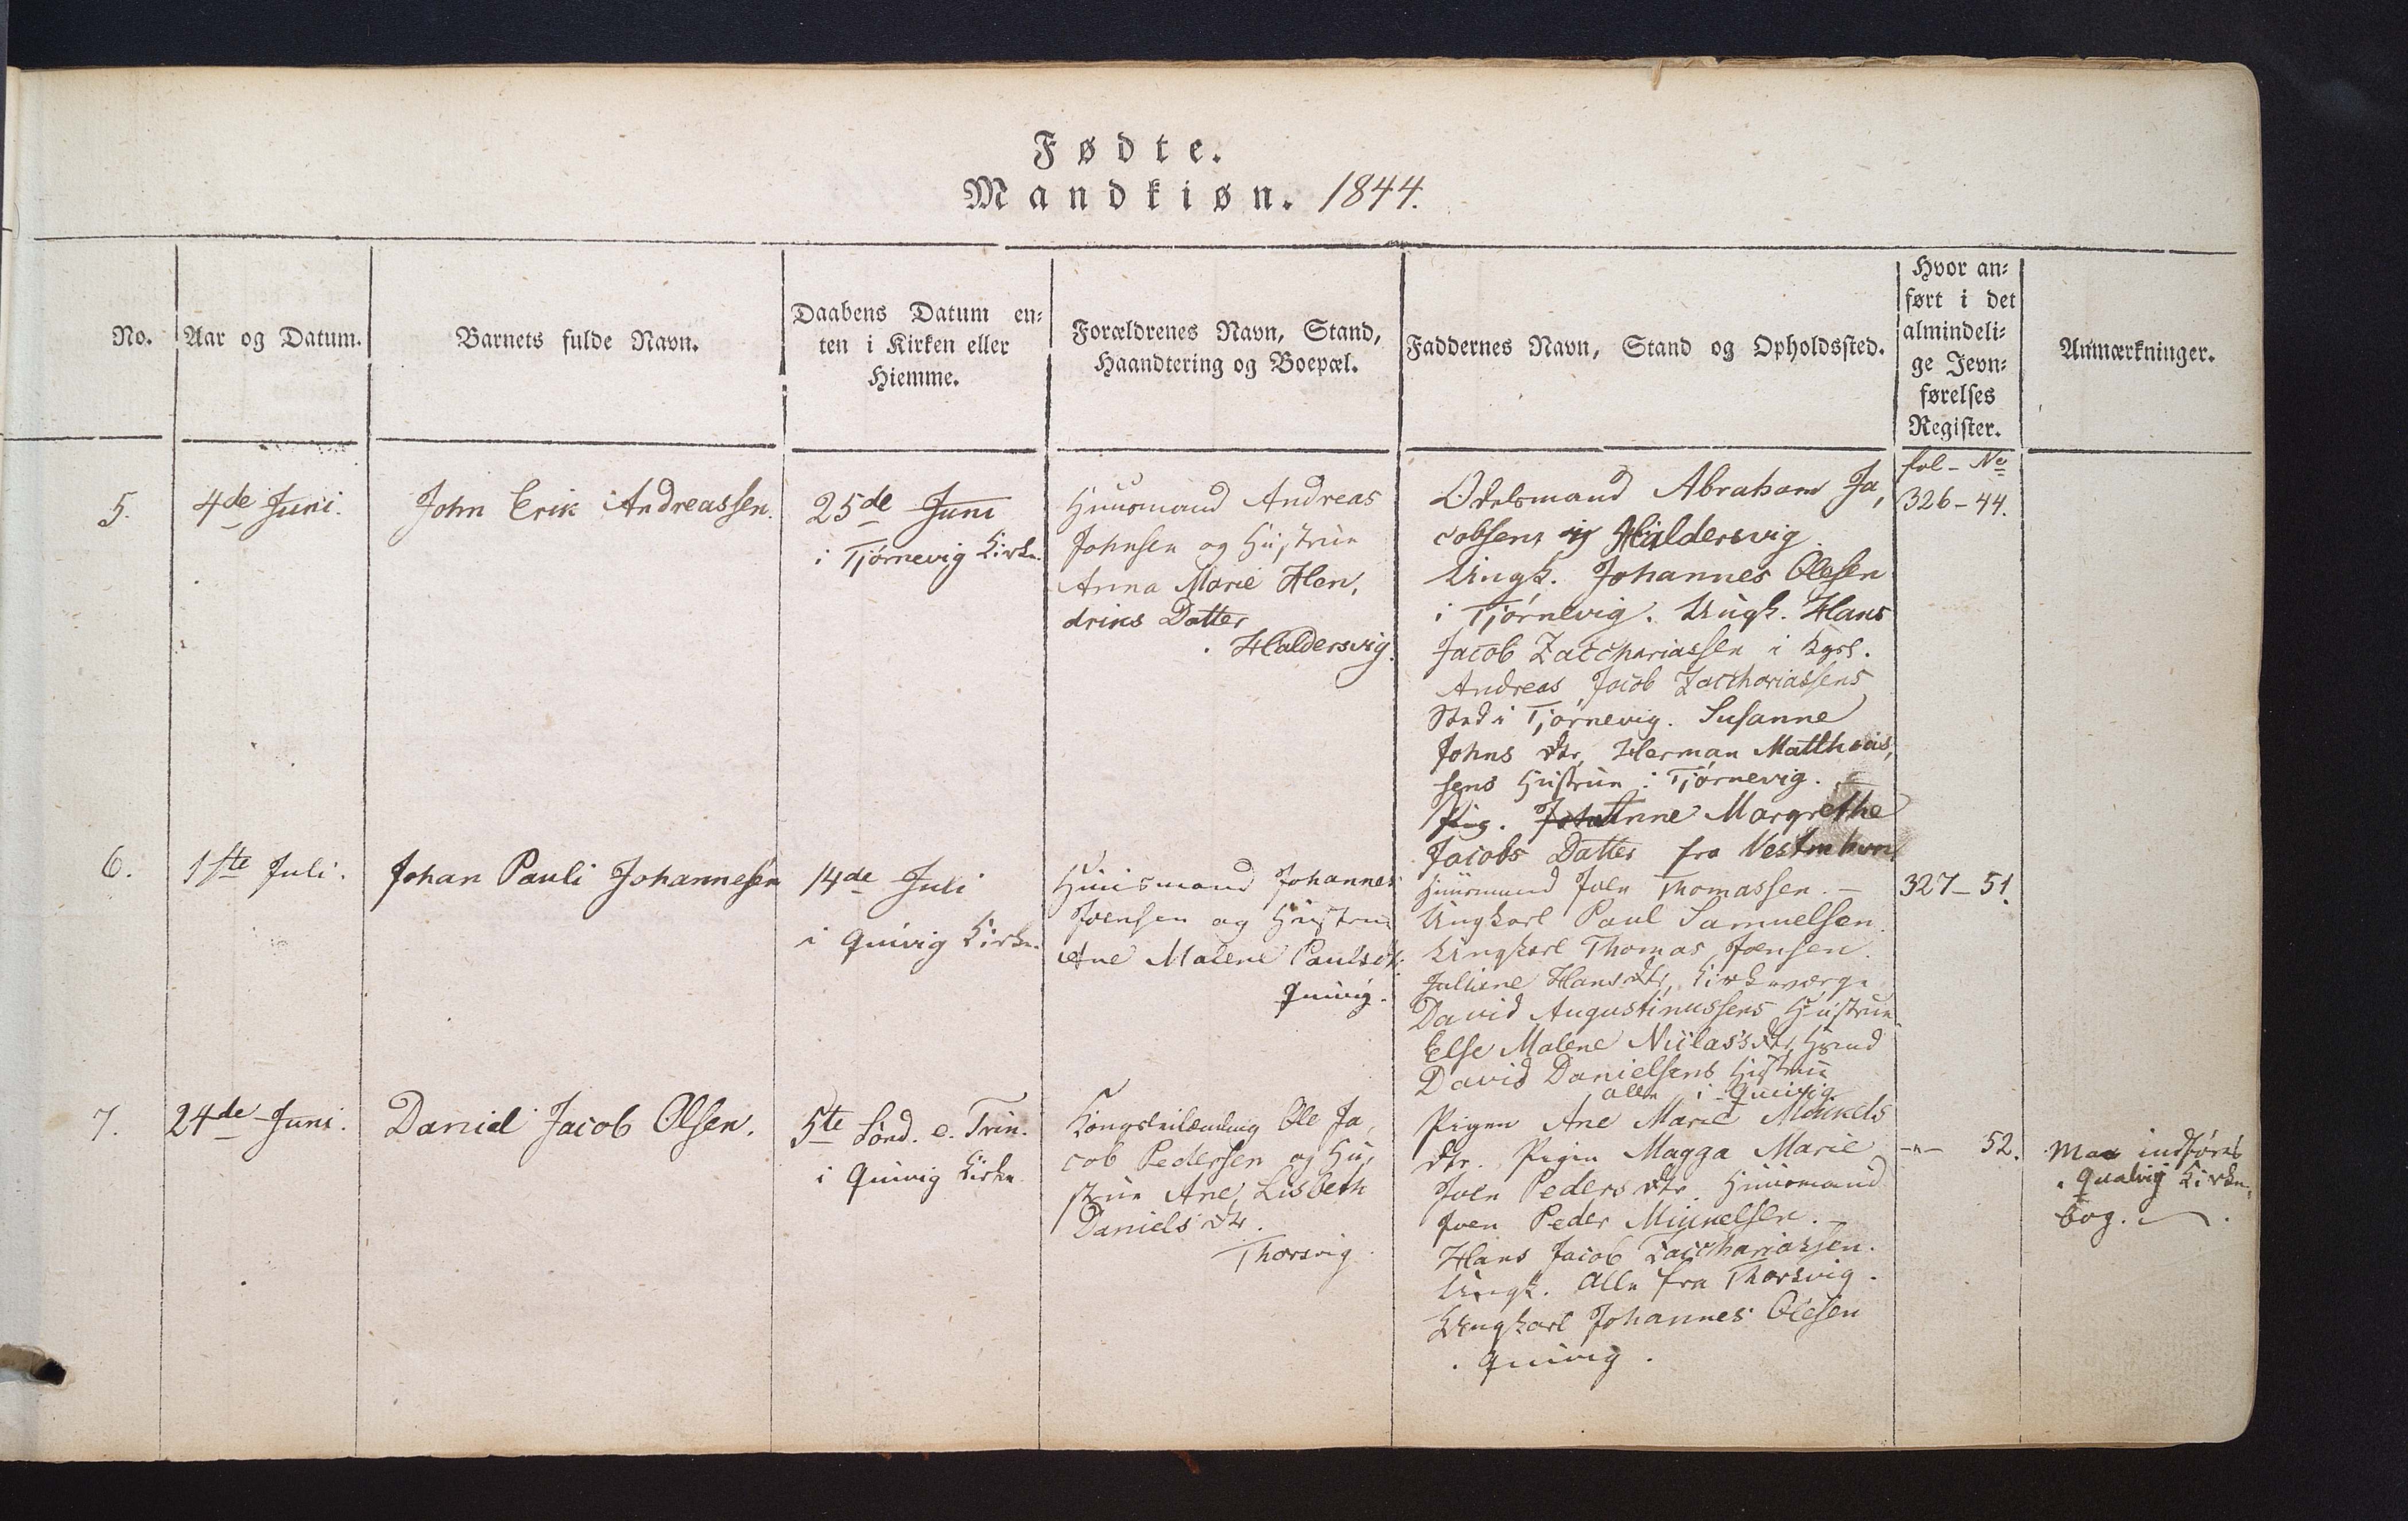 Fødte.
Mandkiøn. 1844.
No.
Aar og Datum.
Barnets fulde Navn.
Daabens Datum en-
ten i Kirken eller
Hiemme.
Forældrenes Navn, Stand,
Haandtering og Boepæl.
Faddernes Navn, Stand og Opholdssted.
Hvor an-
ført i det
almindeli-
ge Jevn-
førelses
Register.
Anmærkninger.
5.
4de Juni.
John Erik Andreassen.
25de Juni
i Tjørnevig Kirke.
Huusmand Andreas
Johnsen og Hustrue
Anna Marie Hen,
driks Datter
Haldersvig.
Odelsmand Abraham Ja,
cobsen Haldersvig.
Ungk. Johannes Olesen
i Tjørnevig. Ungk. Hans
Jacob Zacchariassen i
Andreas Jacob Zacchariassens
i Tjørnevig. Susanne
Johns dtr, Herman Matthias,
sens Hustrue i Tjørnevig.
Pig. Anne Margrethe
Jacobs Datter fra Vestmhvn
fol - No
326 - 44.
6.
1ste Juli.
Johan Pauli Johannesen
14de Juli
i Quivig Kirke.
Huusmand Johannes
Joensen og Hustrue
Ane Malene Paulsdtr.
Quivig.
Huusmand Joen Thomassen. -
Ungkarl Paul Samuelsen.
Ungkarl Thomas Joensen.
Juliene Hansdtr, Kirkeværge
David Augustinussens Hustrue
Else Malene Niclassdtr, Hsmd
David Danielsens Hustrue
alle i Quivig.
327 - 51.
7.
24de Juni.
Daniel Jacob Olsen.
5te Sønd. e. Trin.
i Quivig Kirke
Kongsleilænding Ole Ja,
cob Pedersen og Hu,
strue Ane Lisbeth
Daniels dtr.
Thorsvig.
Pigen Ane Marie Mikkels
dtr. Pigen Magga Marie
Joen Peders dtr. Huusmand
Joen Peder Mikkelsen. -
Hans Jacob Zacchariassen.
Ungk. Alle fra Thorsvig.
Ungkarl Johannes Olesen
Quivig.
-"- 52.
indføres
i Qualvig Kirke,
bog.